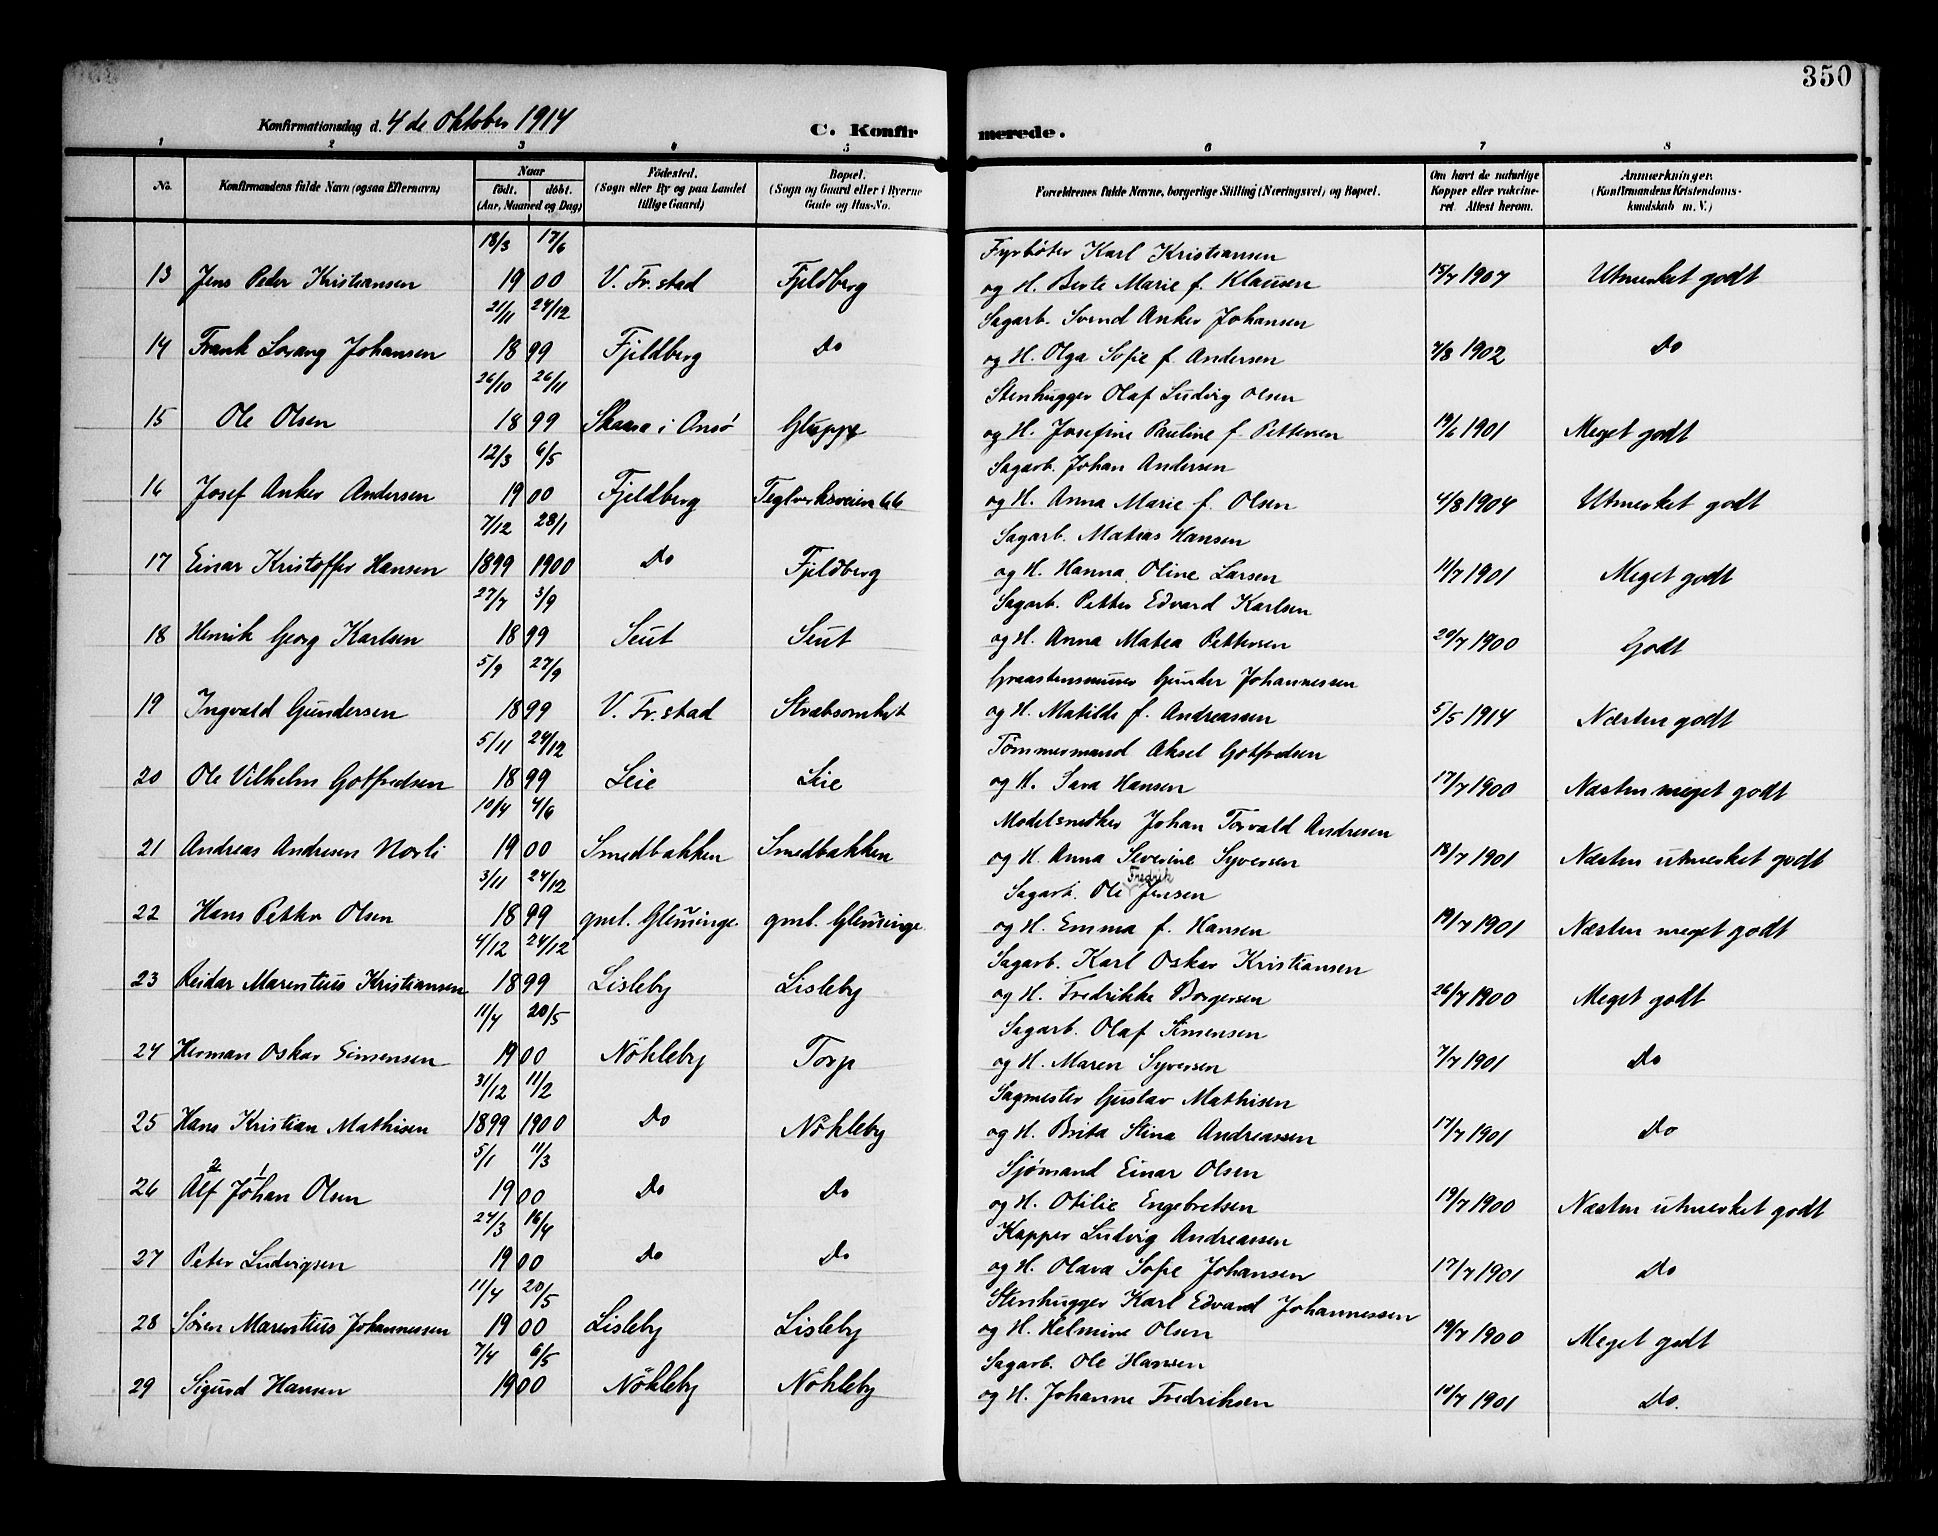 350
Konfirmationsdag d. 4 de Oktober 1914 C. Konfirmerede.
1 2 3 4 5 6 7 8
No. Konfirmandens fulde Navn (ogsaa Efternavn) Naar født. døbt. (Aar, Maaned og Dag) Fødested. (Sogn eller By og paa Landet tillige Gaard) Bopæl. (Sogn og Gaard eller i Byerne Gade og Hus-No. Forældrenes fulde Navne, borgerlige Stilling (Næringsvei) og Bopæl. Om havt de naturlige Kopper eller vakcineret Attest herom. Anmerkninger. (Konfirmandens Kristendomskundskab m. V.)
18/3 17/6 Fyrbøter Karl Kristiansen
13 Jens Peter Kristiansen 1900 V. Fr.stad Fjeldberg og H. Berte Marie f. Klausen 15/7 1907 Utmerket godt
21/11 24/12 Sagarb. Svend Anker Johansen
14 Frank Lorang Johansen 1899 Fjeldberg Do og H. Olga Sofie f. Andersen 7/8 1902 Do
26/10 26/11 Stenhugger Olaf Ludvig Olsen
15 Ole Olsen 1899 Skaara i Onsø Gluppe og H. Josefine Pauline f. Pettersen 19/6 1901 Meget godt
12/3 6/5 Sagarb. Johan Andersen
16 Josef Anker Andersen 1900 Fjeldberg Teglverksveien 66 og H. Anna Marie f. Olsen 4/8 1904 Utmerket godt
7/12 28/1 Sagarb. Matias Hansen
17 Einar Kristoffer Hansen 1899 1900 Do Fjeldberg og H. Hanna Oline Larsen 11/7 1901 Meget godt
27/7 3/9 Sagarb. Petter Edvard Karlsen
18 Henrik Georg Karlsen 1899 Seut Seut og H. Anna Matea Pettersen 20/7 1900 Godt
5/9 27/9 Graastensmurer Gunder Johannessen
19 Ingvald Gundersen 1899 V. Fr.stad Stræbsomhet og H. Matilde f. Andreassen 5/5 1914 Næsten godt
5/11 24/12 Tømmermand Aksel Gotfredsen
20 Ole Vilhelm Gotfredsen 1899 Leie Leie og H. Sara Hansen 17/7 1900 Næsten meget godt
10/4 4/6 Modelsnedker Johan Torvald Andresen
21 Andreas Andresen Norli 1900 Smedbakken Smedbakken og H. Anna Severine Syversen 18/7 1901 Næsten utmerket godt
3/11 24/12 Sagarb. Ole Fredrik Jensen
22 Hans Petter Olsen 1899 gml. Glemminge gml. Glemminge og H. Emma f. Hansen 19/7 1901 Næsten meget godt
4/12 24/12 Sagarb. Karl Oskar Kristiansen
23 Reidar Marentius Kristiansen 1899 Lisleby Lisleby og H. Fredrikke Borgersen 26/7 1900 Meget godt
11/4 20/5 Sagarb. Olaf Simensen
24 Herman Oskar Simensen 1900 Nøkleby Torp og H. Maren Syversen 7/7 1901 Do
31/12 11/2 Sagmester Gustav Mathisen
25 Hans Kristian Mathisen 1899 1900 Do Nøkleby og H. Brita Stina Andreassen 17/7 1901 Do
5/1 11/3 Sjømand Einar Olsen
26 Alf Johan Olsen 1900 Do Do og H. Otilie Engebretsen 19/7 1900 Næsten utmerket godt
24/3 16/4 Kapper Ludvig Andreassen
27 Peter Ludvigsen 1900 Do Do og H. Olava Sofie Johansen 17/7 1901 Do
11/4 20/5 Stenhugger Karl Edvard Johannessen
28 Søren Marentius Johannessen 1900 Lisleby Lisleby og H. Helmine Olsen 19/7 1900 Meget godt
7/4 6/5 Sagarb. Ole Hansen
29 Sigurd Hansen 1900 Nøkleby Nøkleby og H. Johanne Fredriksen 10/7 1901 Do.